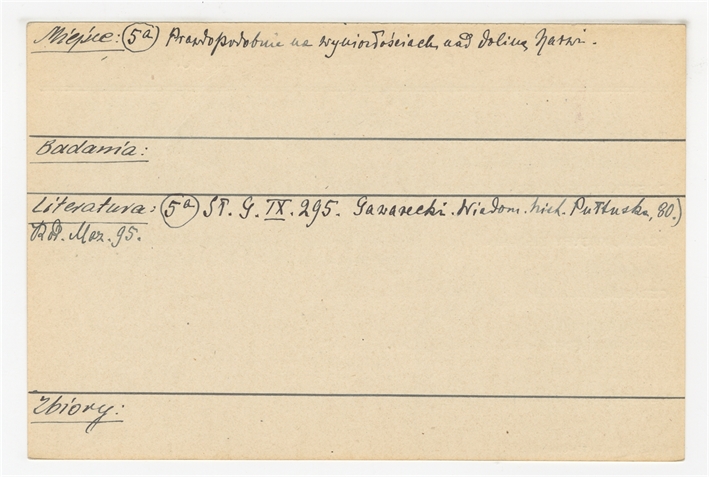 Miejsce: (5a) Prawdopodobnie na wyniosłościach nad doliną Narwi.
Badania:
Literatura: (5a) Sł. G. IX. 295. Gawarecki. Wiadom. hist. Pułtuska, 80.)
Maz. 95.
Zbiory: